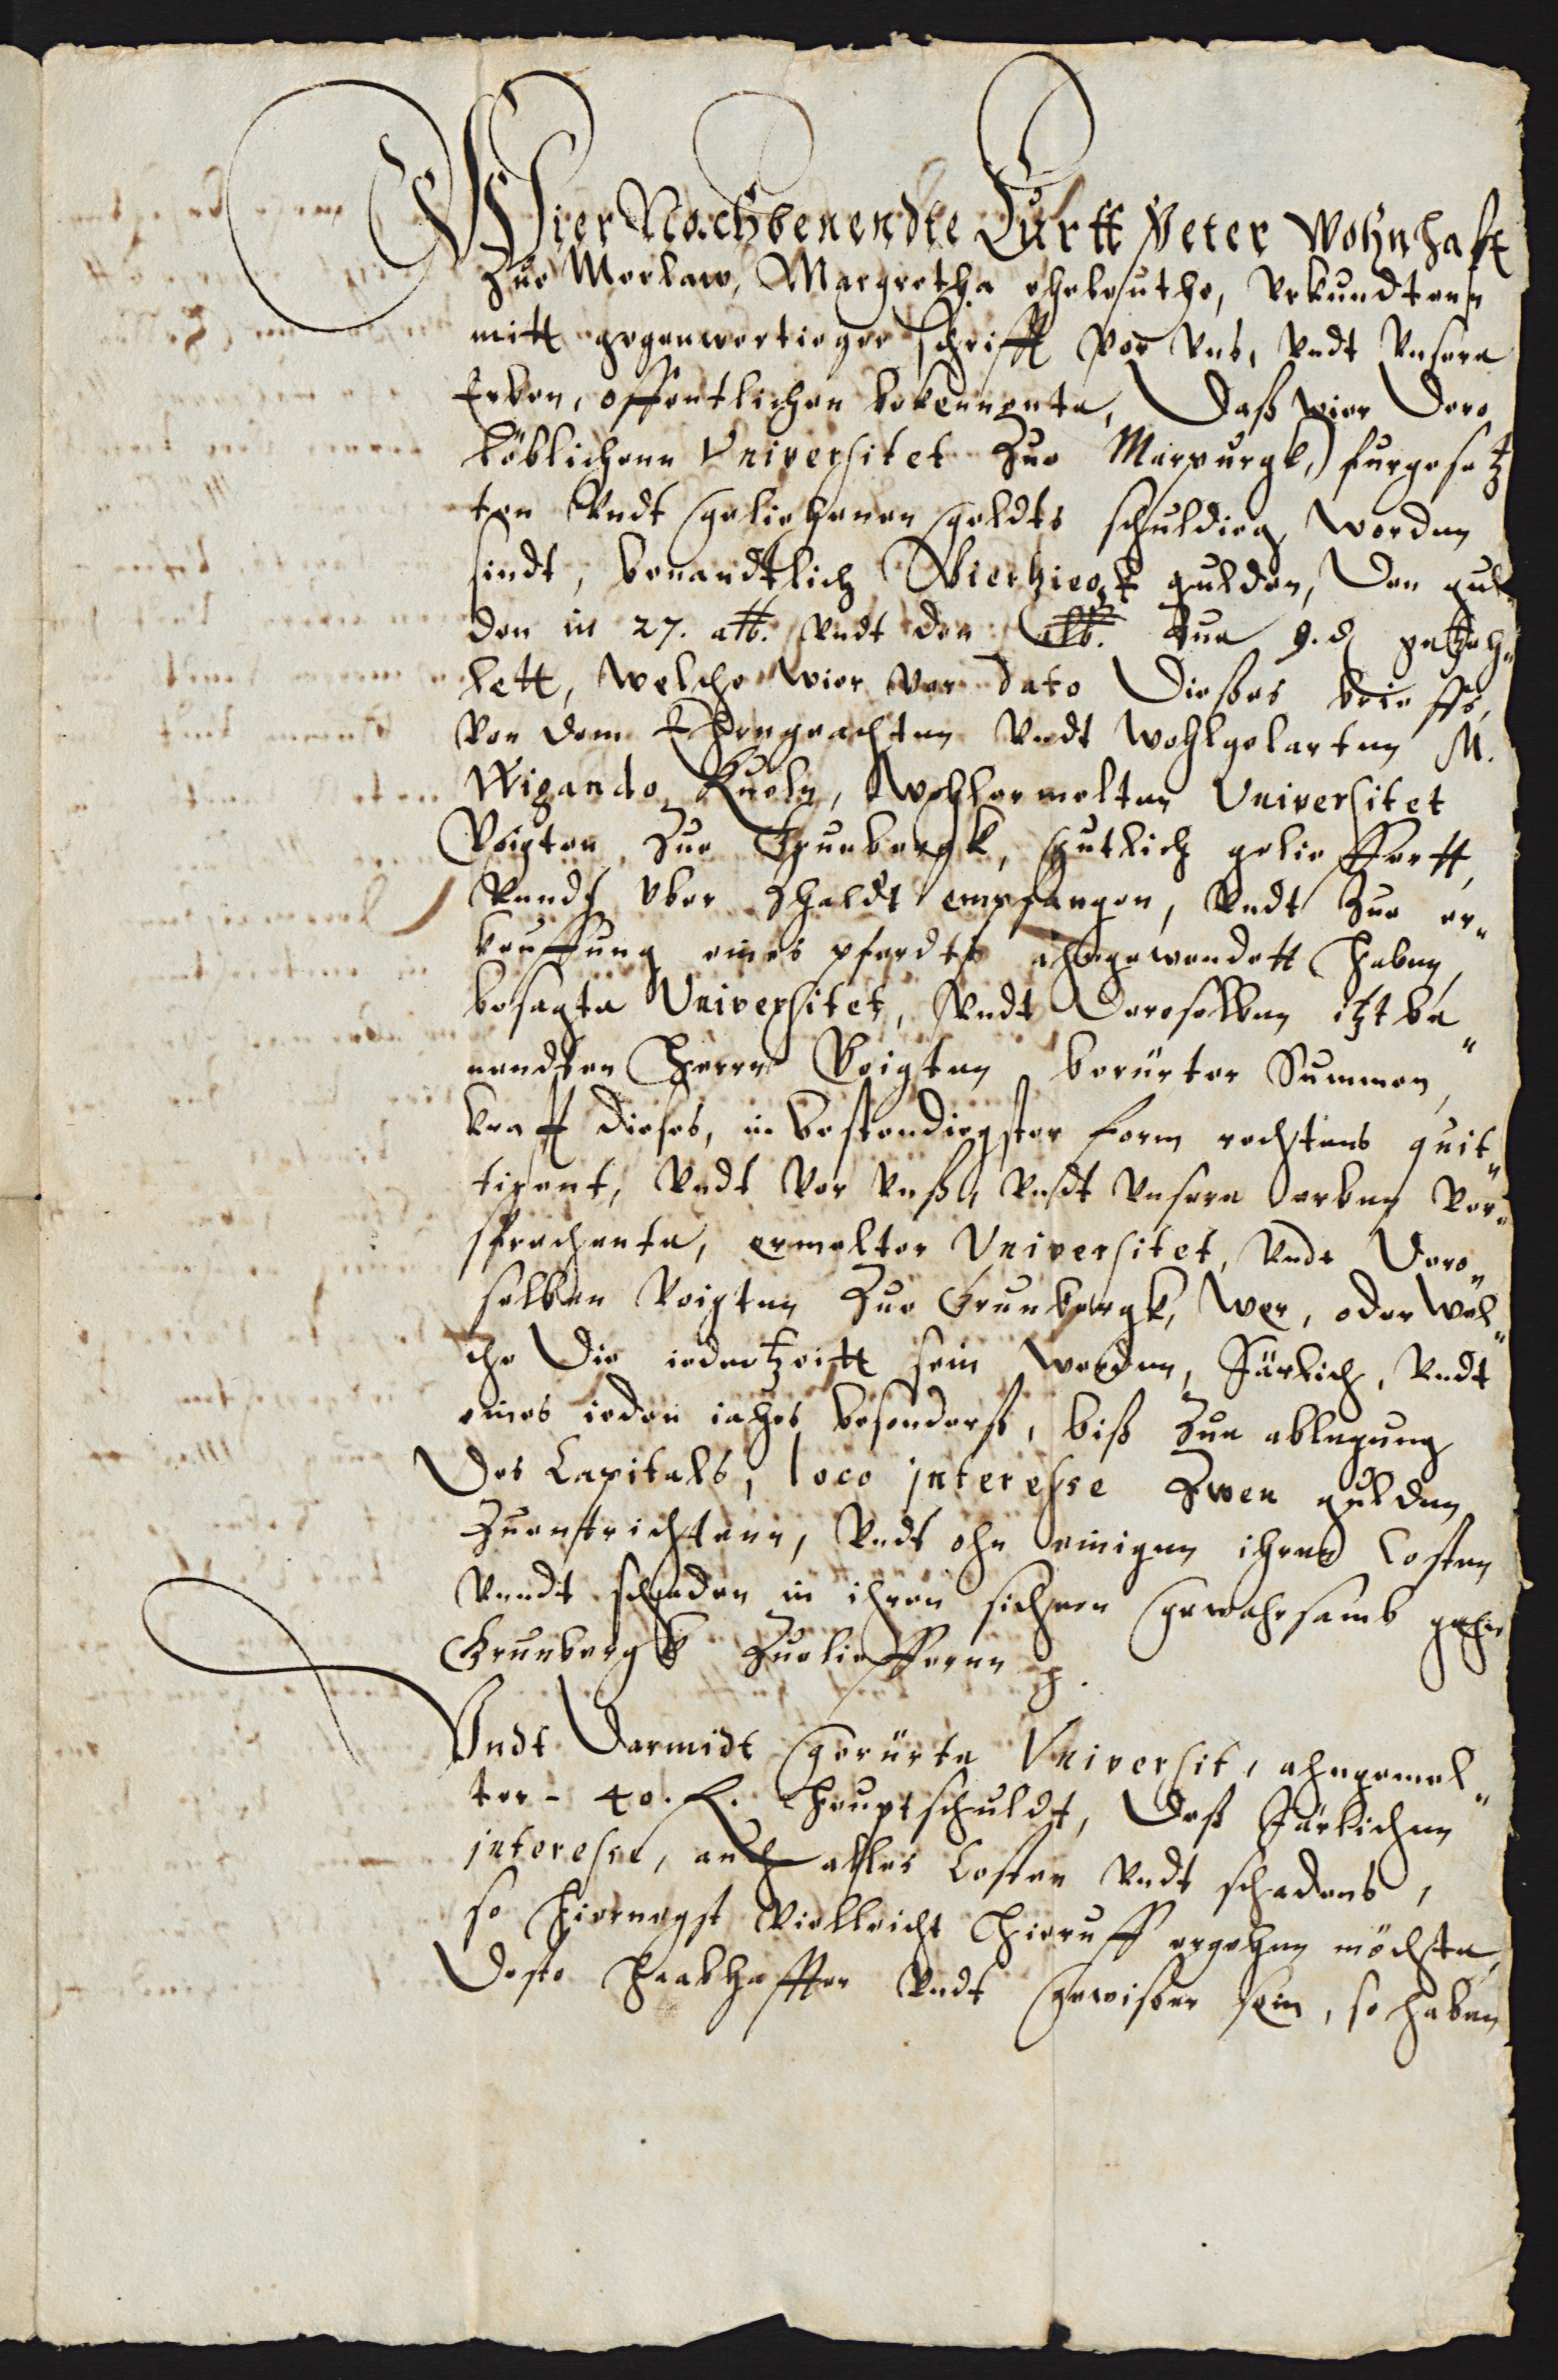 Wier Nachbenendte Curtt Peter wohnhafft
Zue Merlaw, Margretha eheleuthe, Vrkundtenn
mitt gegenwertieger schrifft vor vns, vndt vnsere
Erben, offentlichen bekennente, Daß wier Dero
löblichenn Vniversitet Zue Marpurgk, furgesetz
ten vndt geliehenen geldts schuldieg worden
sindt, benandtlich Viertziegk gulden, Den gul„
den in 27. alb. vndt den alb. Zue 9. d getzeh„
lett, welche wier vor dato Dießes brieffs,
von dem Ehrngeachten vndt wohlgelarten M.
Wigando Kueln, wohlermelter Vniversitet
Voigten Zue Grunbergk, gutlich gelieffertt,
vnndt vber Zhaldt empfangen, vndt Zue er„
keuffung eines pferdtß ahngewendett haben,
besagte Vniversitet, vndt Dereselben itzt be„
nendten herrn Voigten berürter Summen,
krafft dieses, in bestendiegster form rechtens quit„
tirent, vndt vor vnß, vndt vnsere erben ver„
sprechente, ermelter Vniversitet, vndt Dero„
selben Voigten Zue Grunbergk, wer, oder wel„
che Die iedertzeitt sein werden, Järlich, vndt
eines ieden iahrs besonderß, biß Zue ablegung
Des Capitals, loco interesse Zwen gulden
Zuentrichtenn, vndt ohn einigen ihren Costen
vnndt schaden in ihren sichern gewahrsamb gehn
Grunbergk Zuelieffernn
Vndt Darmidt gerürte Vniversit, ahngemel„
ter - 40. fl. Heuptschuldt, Deß Järlichen
interesse, auch alles Costen vndt schadens,
so hiernegst vielleicht hieruff ergehen möchte,
Desto haabhaffter vndt gewißer sein, so haben